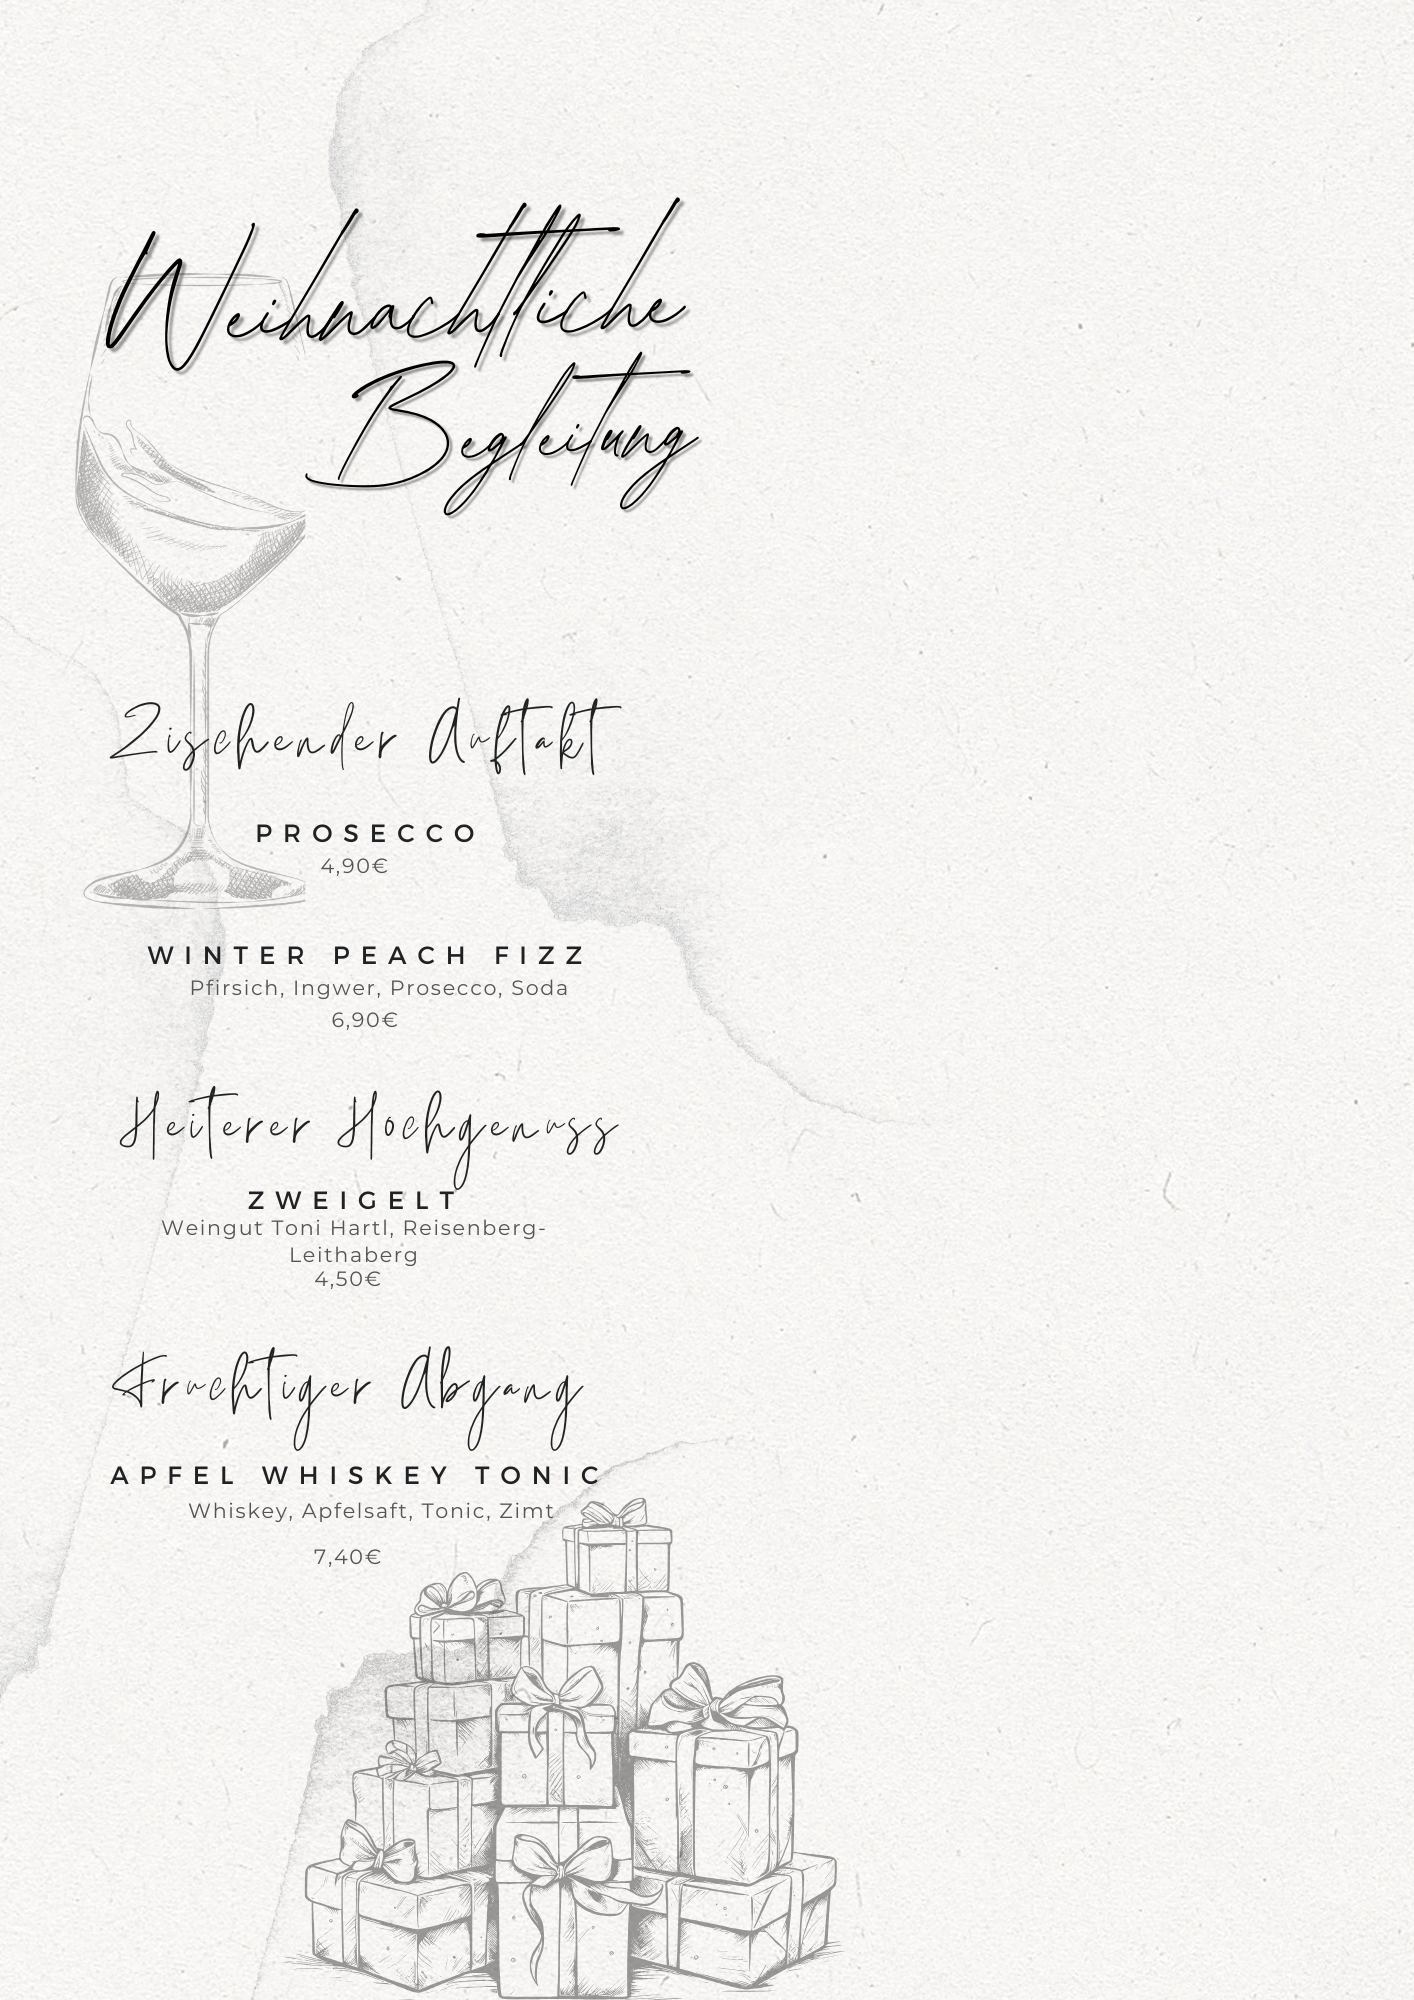 Weihnachtliche
Begleitung
Zischender Auftakt
PROSECCO
4,90€
WINTER PEACH FIZZ
Pfirsich, Ingwer, Prosecco, Soda
6,90€
Heiterer Hochgenuss
ZWEIGELT
Weingut Toni Hartl, Reisenberg-
Leithaberg
4,50€
Fruchtiger Abgang
APFEL WHISKEY TONIC
Whiskey, Apfelsaft, Tonic, Zimt
7,40€